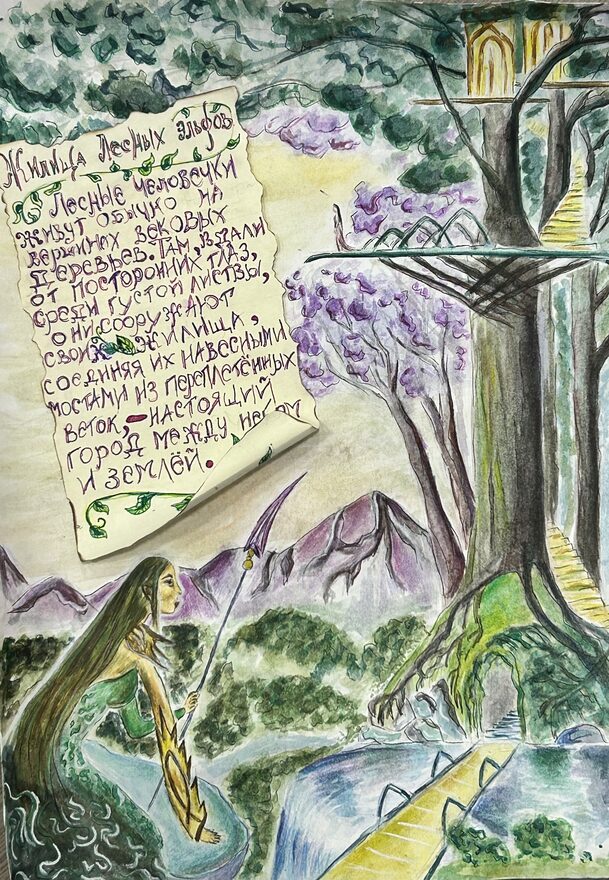 Жилища Лесных Эльфов
Лесные человечки
живут обычно на
вершинах вековых
деревьев. Там, вдали
от посторонних глаз,
среди густой листвы,
они сооружают
свои жилища,
соединяя их навесными
мостами из переплетённых
веток, – настоящий
город между
и землёй.